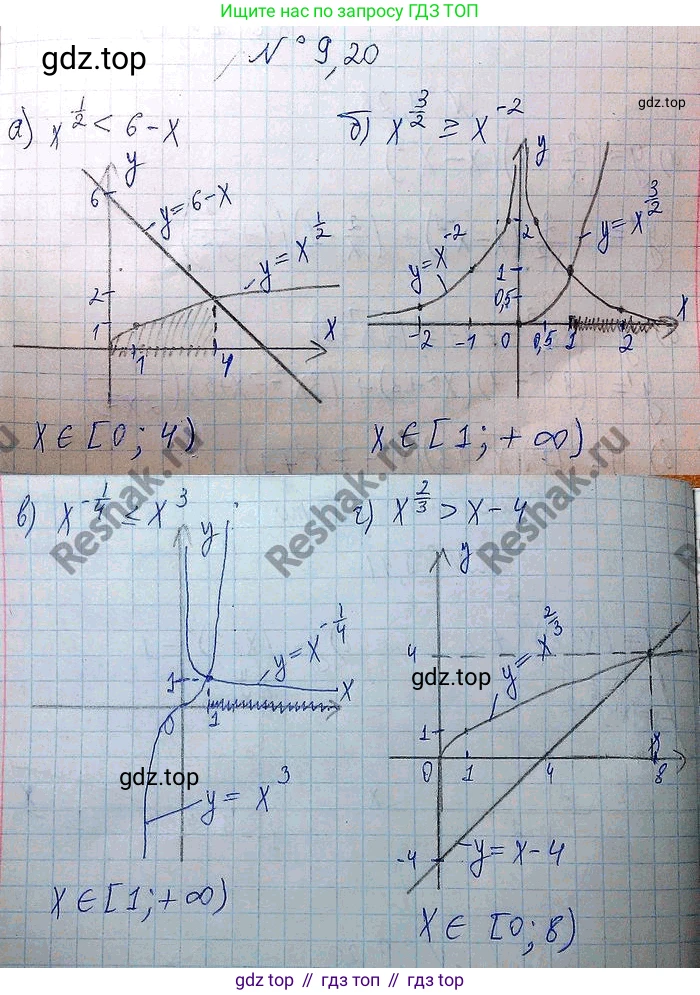 Ищите нас по запросу ГДЗ ТОП
gdz.top
№ 9,20
gdz.top
а) x^{1/2} < 6 - x
б) x^{3/2} ≥ x^{-2}
y
6
y = 6 - x
y = x^{1/2}
2
1
1
4
x
y
y = x^{-2}
y = x^{3/2}
2
1
0,5
-2
-1
0
0,5
1
2
x
x ∈ [0; 4)
x ∈ [1; +∞)
Reshak.ru
Reshak.ru
в) x^{-1/4} ≤ x^3
г) x^{2/3} > x - 4
y
y = x^{-1/4}
1
0
1
x
y = x^3
y
4
y = x^{2/3}
gdz.top
1
0
1
4
8
x
-4
y = x - 4
gdz.top
x ∈ [1; +∞)
x ∈ [0; 8)
gdz.top // гдз топ // гдз.топ // gdz top